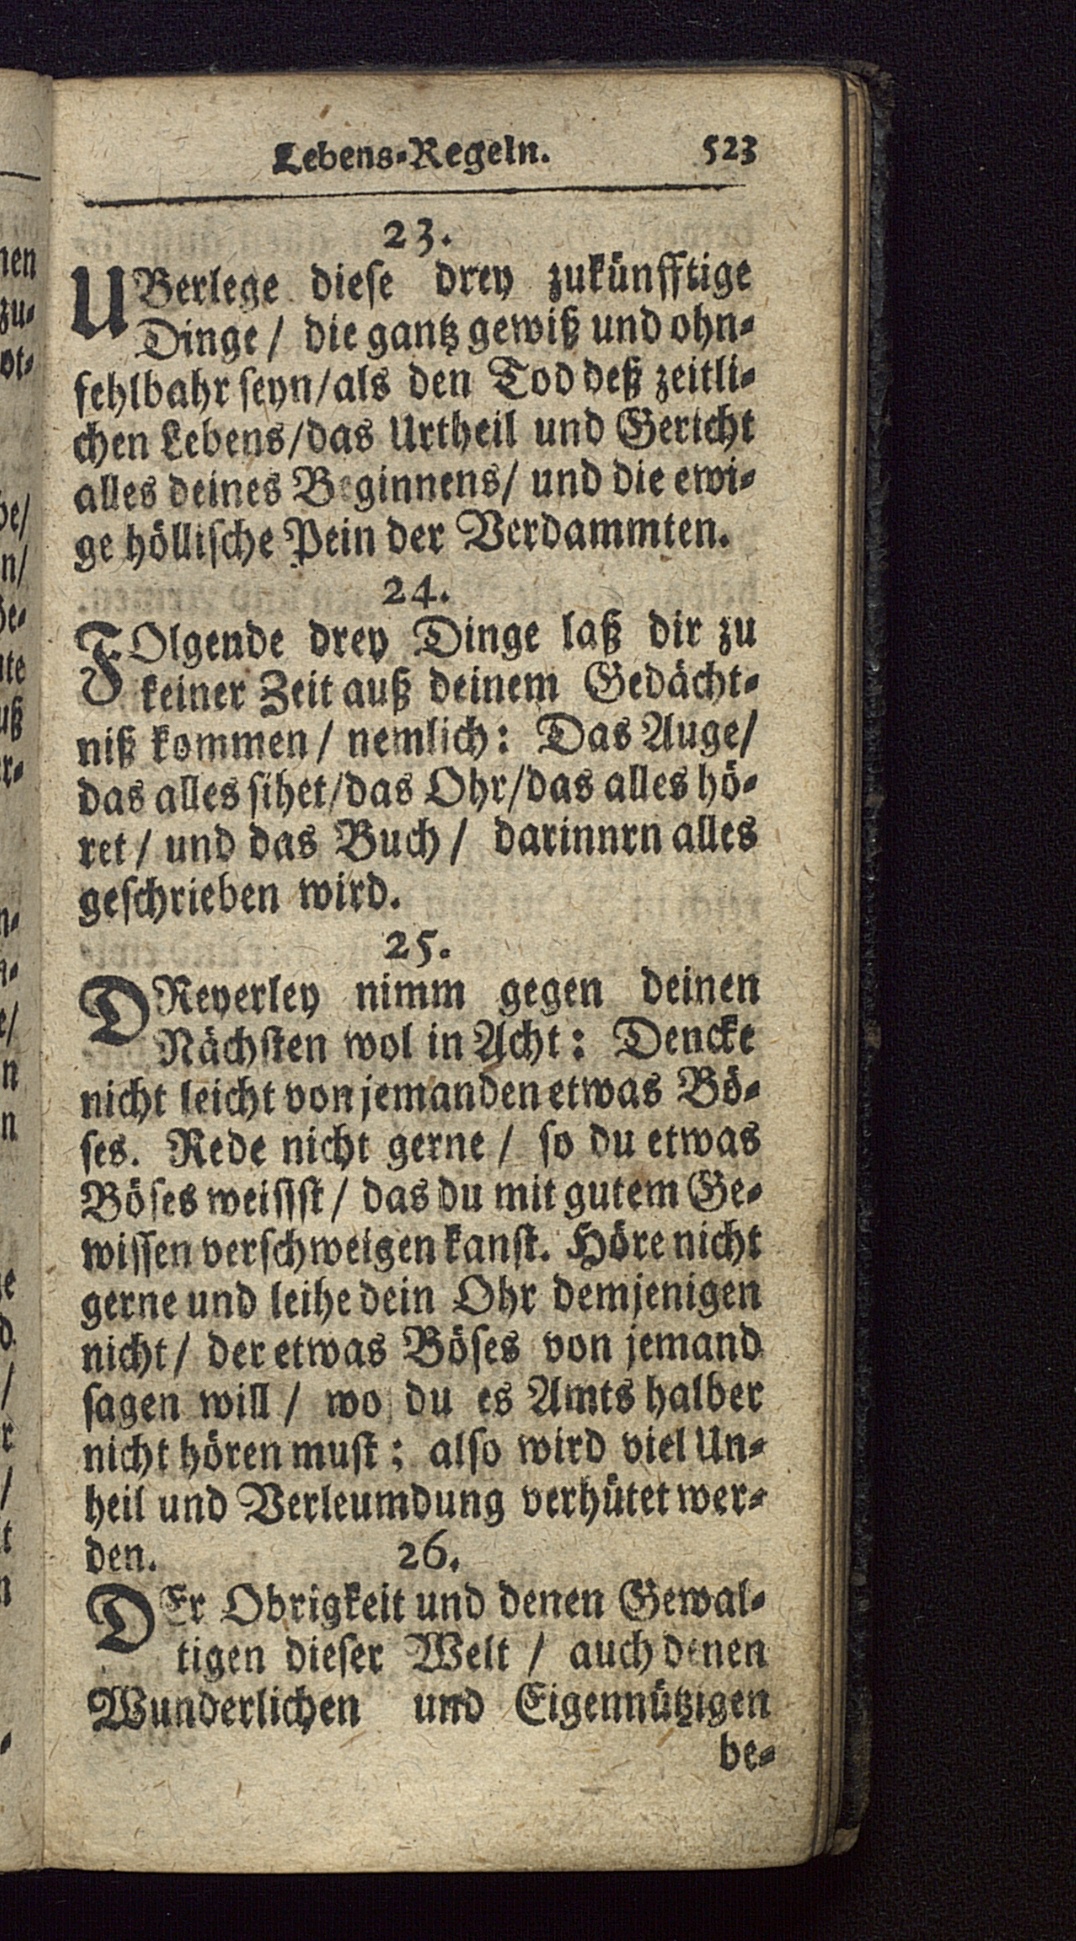 Lebens-Regeln. 523
23.
UBerlege diese drey zukünfftige
Dinge / die gantz gewiß und ohn-
fehlbahr seyn/als den Tod deß zeitli-
chen Lebens/das Urtheil und Gericht
alles deines Beginnens/ und die ewi-
ge höllische Pein der Verdammten.
24.
FOlgende drey Dinge laß dir zu
keiner Zeit auß deinem Gedächt-
niß kommen / nemlich: Das Auge/
das alles sihet/das Ohr/das alles hö-
ret / und das Buch / darinnrn alles
geschrieben wird.
25.
DReyerley nimm gegen deinen
Nächsten wol in Acht: Dencke
nicht leicht von jemanden etwas Bö-
ses. Rede nicht gerne / so du etwas
Böses weissst / das du mit gutem Ge-
wissen verschweigen kanst. Höre nicht
gerne und leihe dein Ohr demjenigen
nicht / der etwas Böses von jemand
sagen will / wo du es Amts halber
nicht hören must; also wird viel Un-
heil und Verleumdung verhütet wer-
den. 26.
DEr Obrigkeit und denen Gewal-
tigen dieser Welt / auch denen
Wunderlichen und Eigennützigen
be-